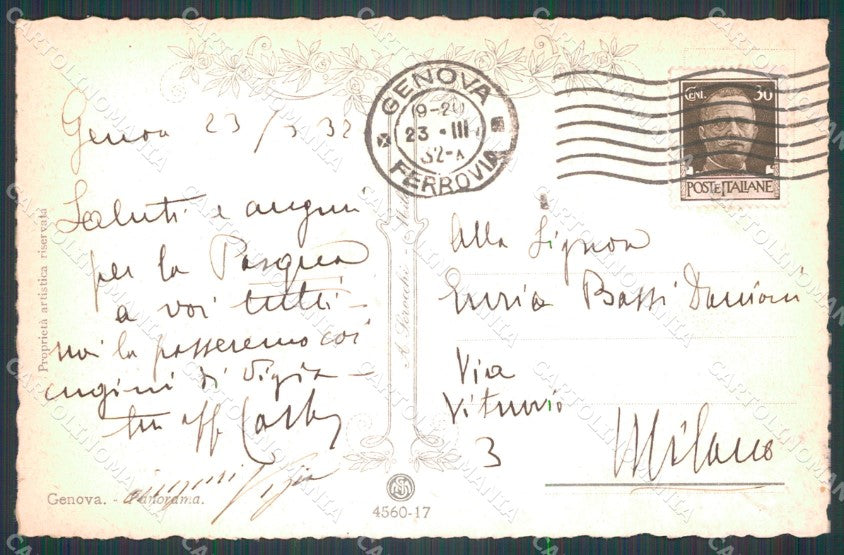 Genova 23/3 32
Saluti e auguri
per la Pasqua
a voi tutti -
noi la passeremo coi
cugini di Vigia -
tuo aff
Alla Signora
Enrica Bassi Damioni
Via
Vitruvio
3
Milano
GENOVA
19-20
23 · III
32-X
FERROVIA
CENT. 30
POSTE ITALIANE
Proprietà artistica riservata
Genova. - Panorama.
4560-17
CARTOLINOMANIA